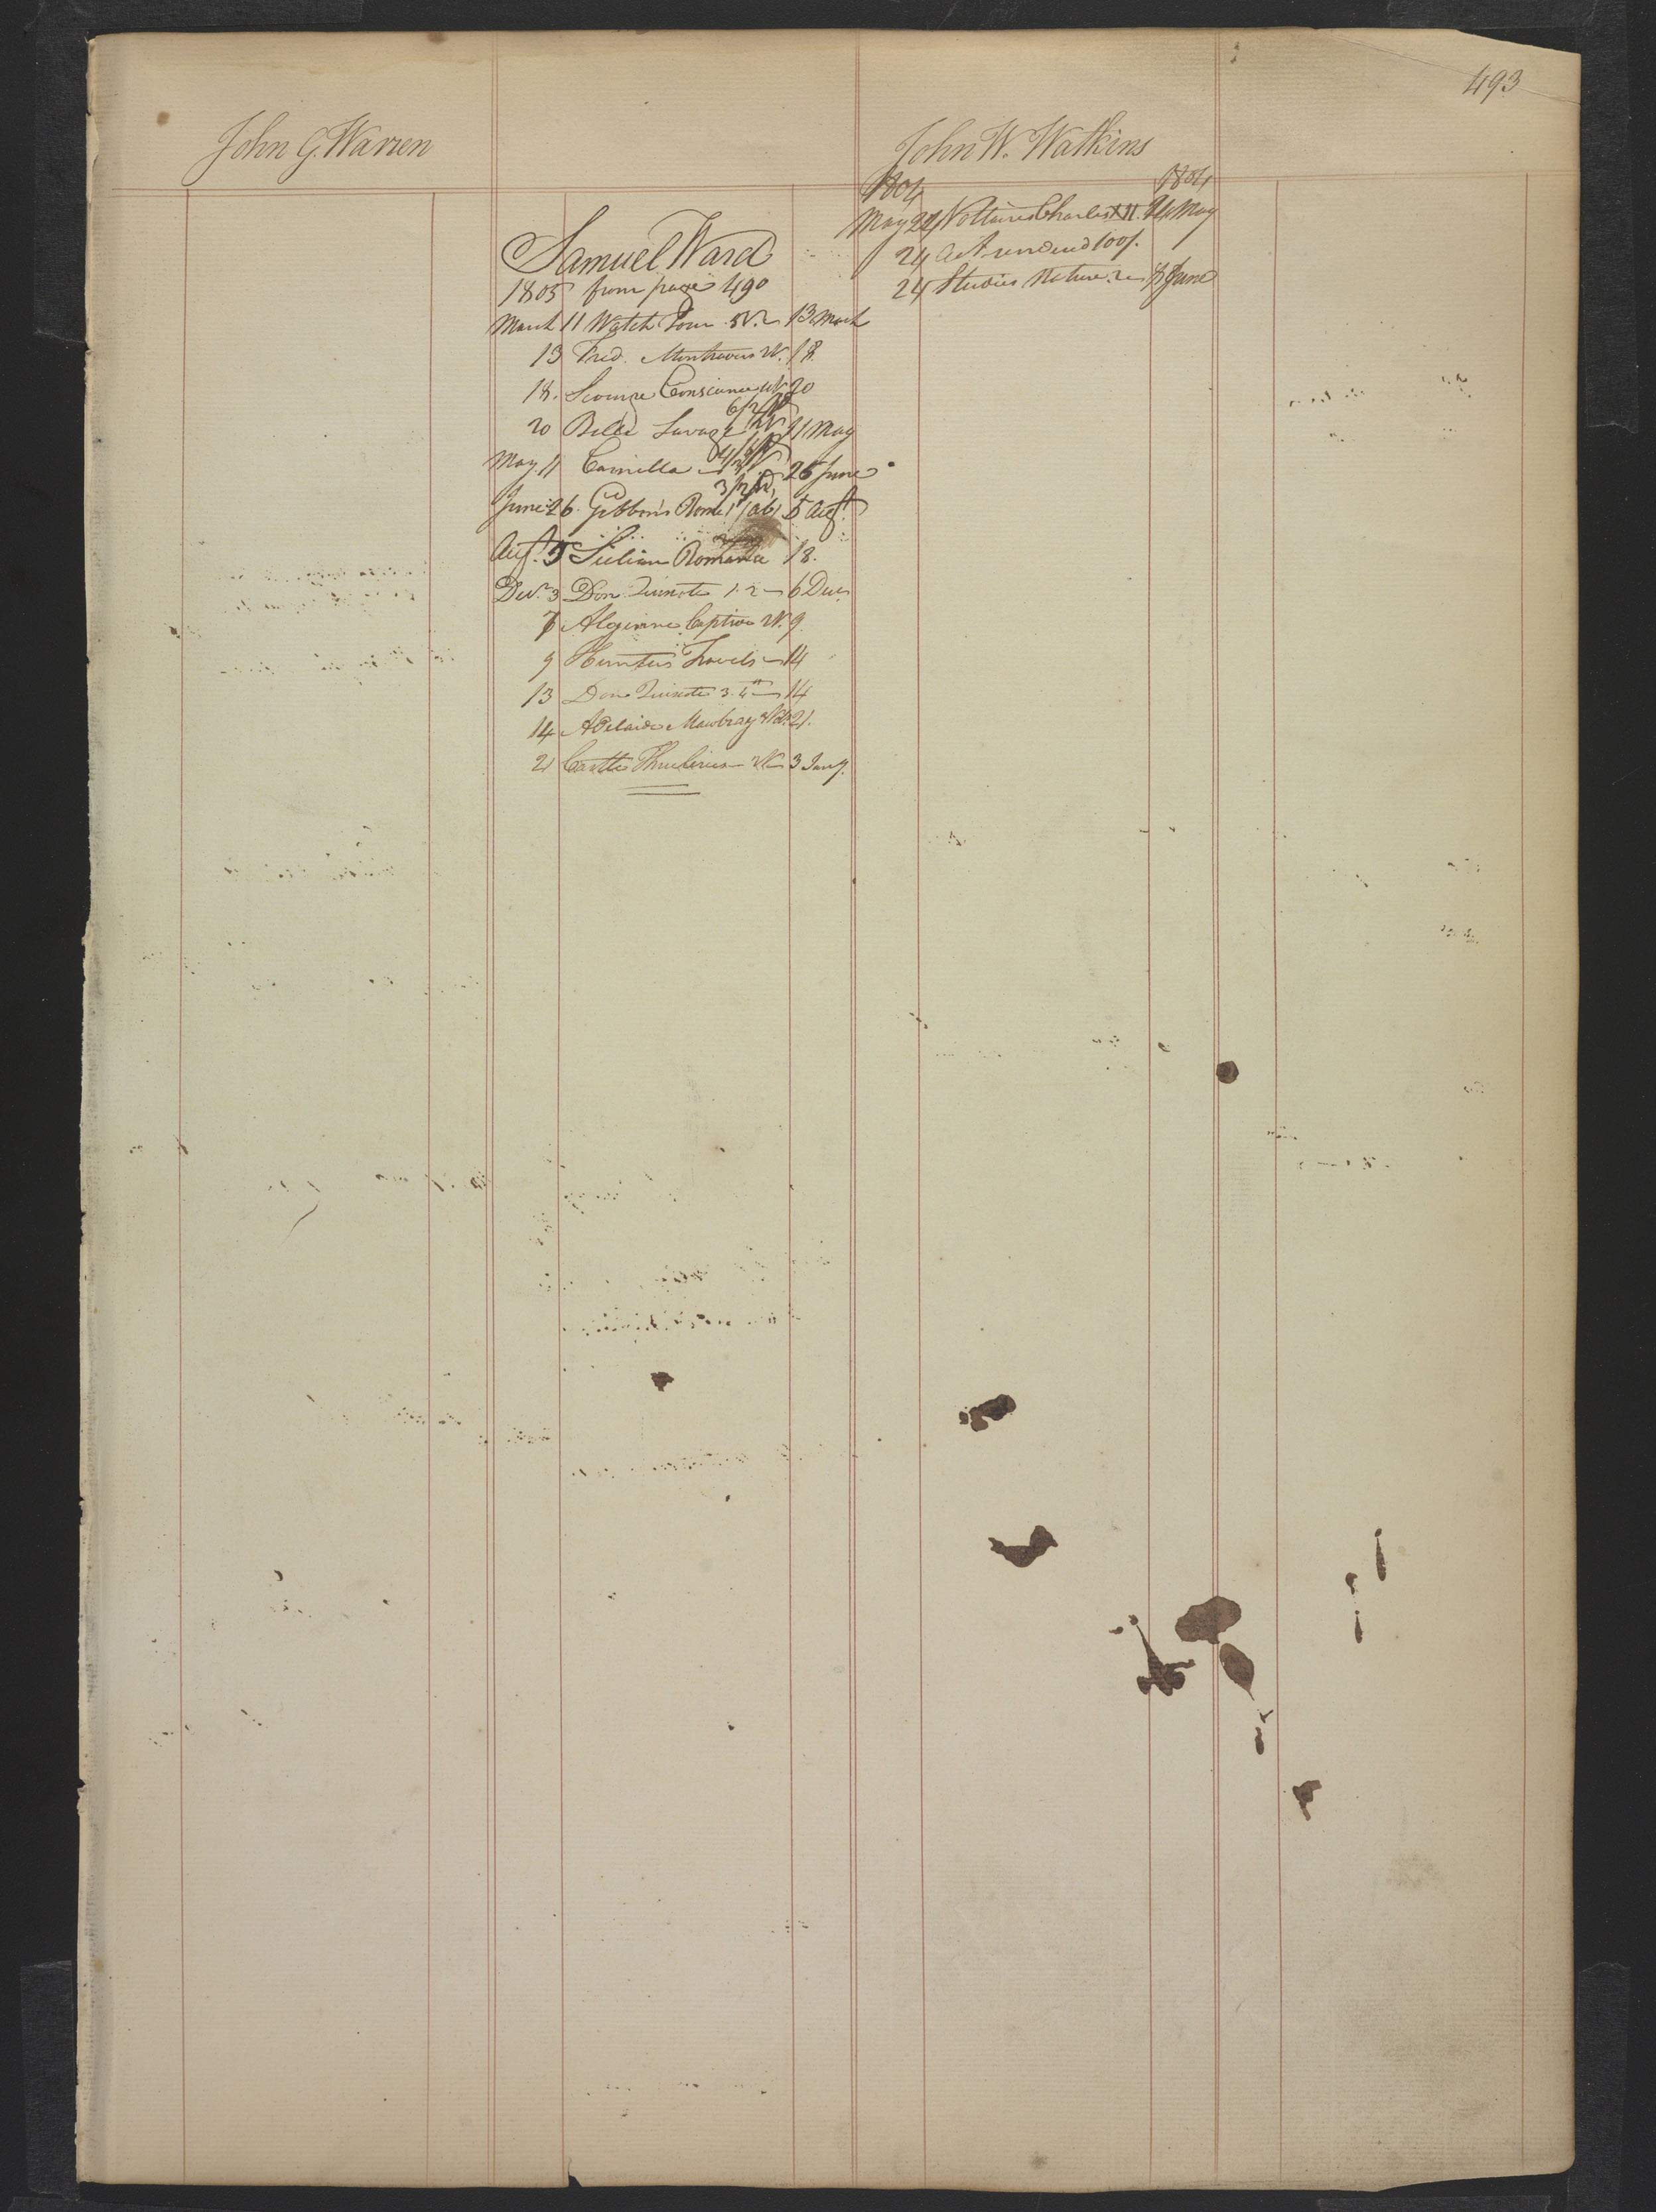 493
John G. Warren
Samuel Ward
1805 from page 490
March 11 Watch Tower 5V. 13 March
13 Fred. Montravers 2V. 18.
18. Scourge Conscience 4V 20
6/2V
20 Belle Savage 2V 11 May
May 11 Camilla 26 June
3/2V
June 26. Gibbon's Rome 5 Augt.
Augt. 5 Sicilian Romance 18.
Decr. 3 Don Quixote 1. 2 6 Decr
7 Algerine Captive 2V. 9.
9 Hunter's Travels 14
13 Don Quixote 3. 4th 14
14 Adelaide Mowbray 21.
21 Castle Thuberion 2V 3 Jany.
John W. Watkins
1804 1804
May 22 Voltaires Charles XII. 24 May
24 a Fine 100/.
24 Studies Nature. 2 8 June